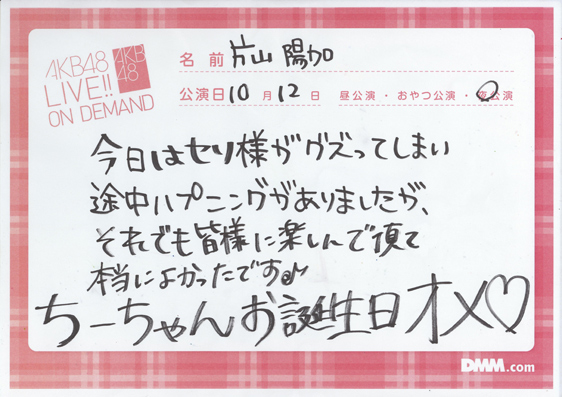 AKB48
LIVE!!
ON DEMAND
AKB
48
名前 片山 陽加
公演日 10月12日 昼公演・おやつ公演・夜公演
今日はセリ様がグズってしまい
途中ハプニングがありましたが、
それでも皆様に楽しんで頂て
本当によかったです♪
ちーちゃんお誕生日オメ♡
DMM.com